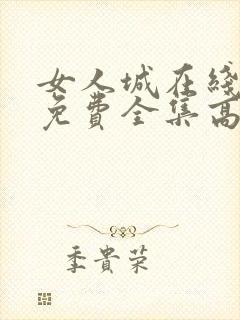 女人城在綫
免費全集高
季貴荣